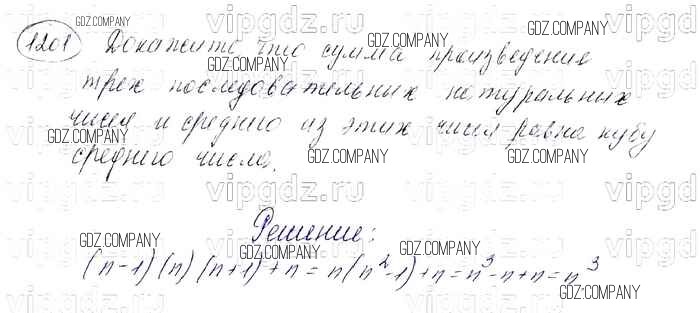 1201 Докажите что сумма произведение
трех последовательных натуральных
чисел и среднего из этих чисел равна кубу
среднего числа.
Решение:
(n-1)(n)(n+1)+n=n(n²-1)+n=n³-n+n=n³